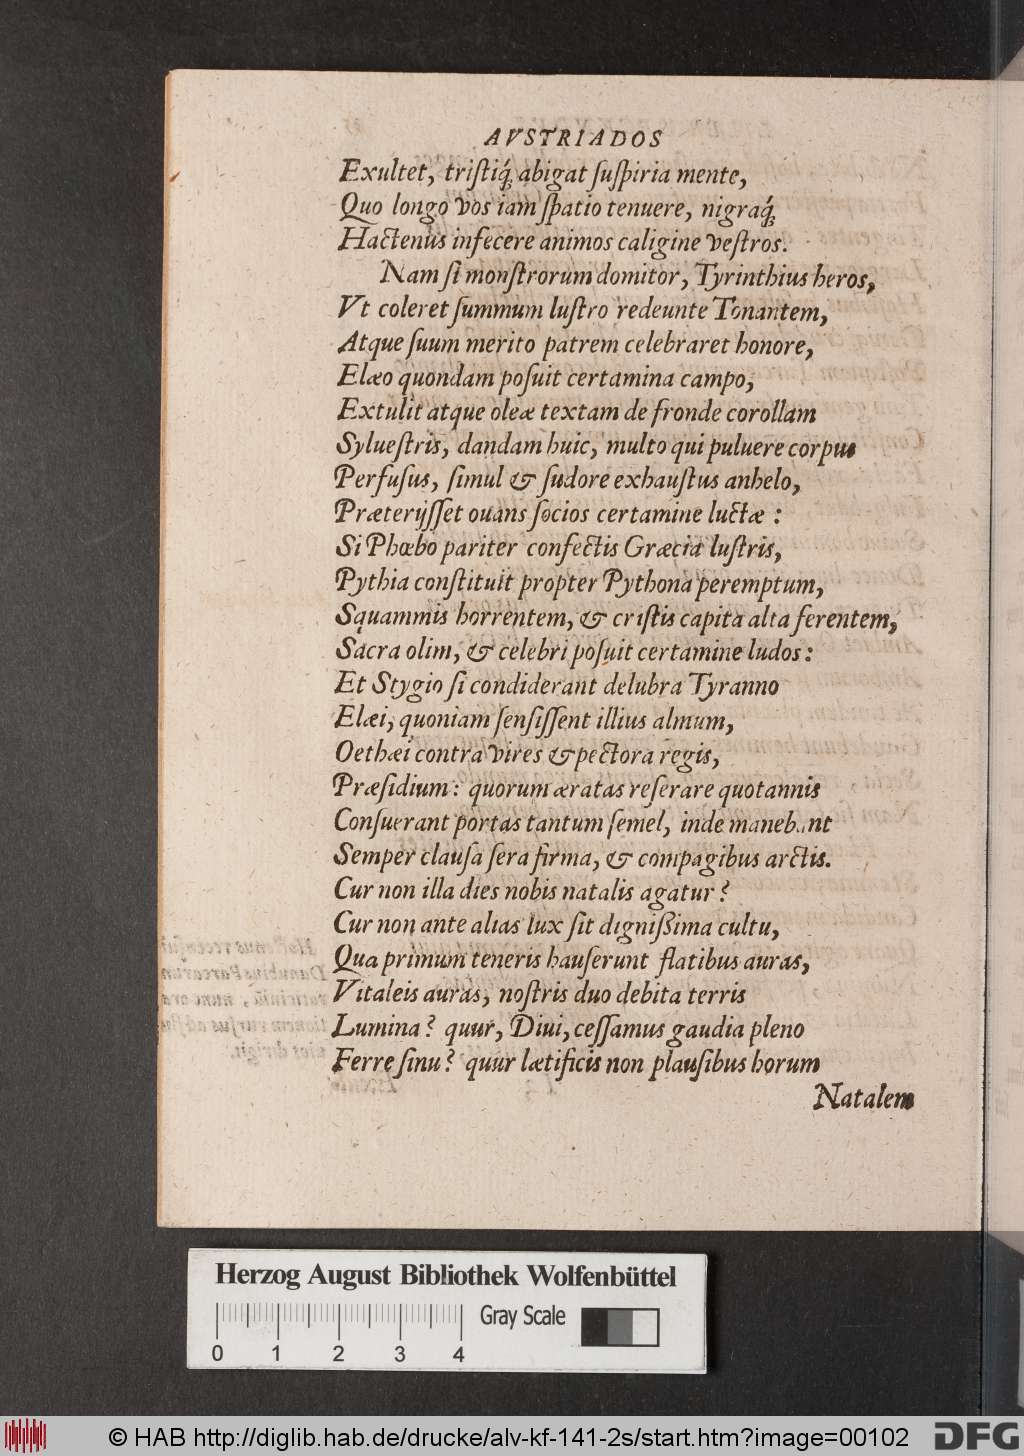 AVSTRIADOS
Exultet, tristiq́; abigat suspiria mente,
Quo longo vos iam spatio tenuere, nigraq́;
Hactenus infecere animos caligine vestros.
Nam si monstrorum domitor, Tyrinthius heros,
Vt coleret summum lustro redeunte Tonantem,
Atque suum merito patrem celebraret honore,
Elæo quondam posuit certamina campo,
Extulit atque oleæ textam de fronde corollam
Syluestris, dandam huic, multo qui puluere corpus
Perfusus, simul & sudore exhaustus anhelo,
Præterijsset ouans socios certamine luctæ :
Si Phœbo pariter confectis Græcia lustris,
Pythia constituit propter Pythona peremptum,
Squammis horrentem, & cristis capita alta ferentem,
Sacra olim, & celebri posuit certamine ludos:
Et Stygio si condiderant delubra Tyranno
Elæi, quoniam sensissent illius almum,
Oethæi contra vires & pectora regis,
Præsidium: quorum æratas reserare quotannis
Consuerant portas tantum semel, inde manebant
Semper clausa sera firma, & compagibus arctis.
Cur non illa dies nobis natalis agatur?
Cur non ante alias lux sit dignißima cultu,
Qua primum teneris hauserunt flatibus auras,
Vitaleis auras, nostris duo debita terris
Lumina? quur, Diui, cessamus gaudia pleno
Ferre sinu? quur lætificis non plausibus horum
Natalem
Herzog August Bibliothek Wolfenbüttel
Gray Scale
0 1 2 3 4
© HAB http://diglib.hab.de/drucke/alv-kf-141-2s/start.htm?image=00102
DFG